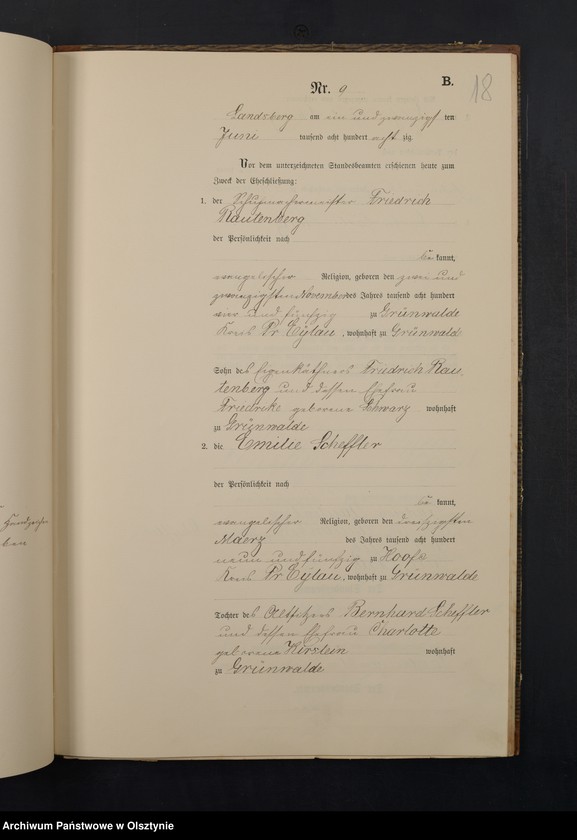 Nr. 9
B.
18
Landsberg am ein und zwanzigsten
Juni tausend acht hundert acht zig.
Vor dem unterzeichneten Standesbeamten erschienen heute zum
Zweck der Eheschließung:
1. der Schuhmachermeister Friedrich
Rautenberg
der Persönlichkeit nach
be kannt,
evangelischer Religion, geboren den zwei und
zwanzigsten November des Jahres tausend acht hundert
vier und fünfzig zu Grünwalde
Kreis Pr Eylau, wohnhaft zu Grünwalde
Sohn des Eigenkäthners Friedrich Rau
tenberg und dessen Ehefrau
Friedrike geborene Schwarz wohnhaft
zu Grünwalde
2. die Emilie Scheffler
der Persönlichkeit nach
be kannt,
evangelischer Religion, geboren den dreißigsten
Maerz des Jahres tausend acht hundert
neun und fünfzig zu Hoofe
Kreis Pr Eylau, wohnhaft zu Grünwalde
Tochter des Altsitzers Bernhard Scheffler
und dessen Ehefrau Charlotte
geborene Kirstein wohnhaft
zu Grünwalde
Handzeichen
Archiwum Państwowe w Olsztynie